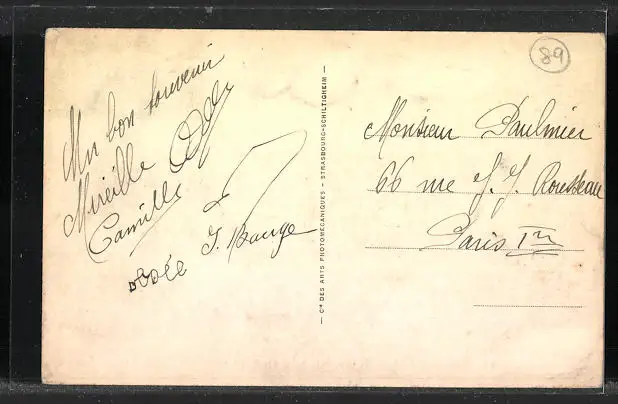 Un bon souvenir
Mireille
Camille
J. Bauge
— Cie DES ARTS PHOTOMÉCANIQUES - STRASBOURG-SCHILTIGHEIM —
89
Monsieur Paulmier
66 rue J. J. Rousseau
Paris Ier